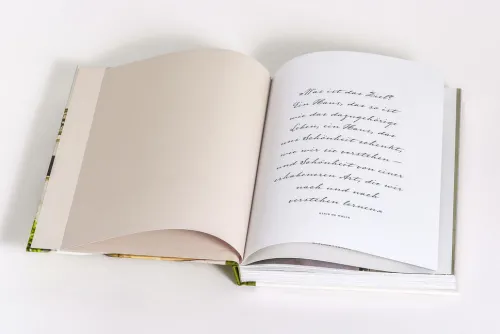 »Was ist das Ziel?
Ein Haus, das so ist
wie das dazugehörige
Leben, ein Haus, das
uns Schönheit schenkt,
wie wir sie verstehen –
und Schönheit von einer
erhabeneren Art, die wir
nach und nach
verstehen lernen«